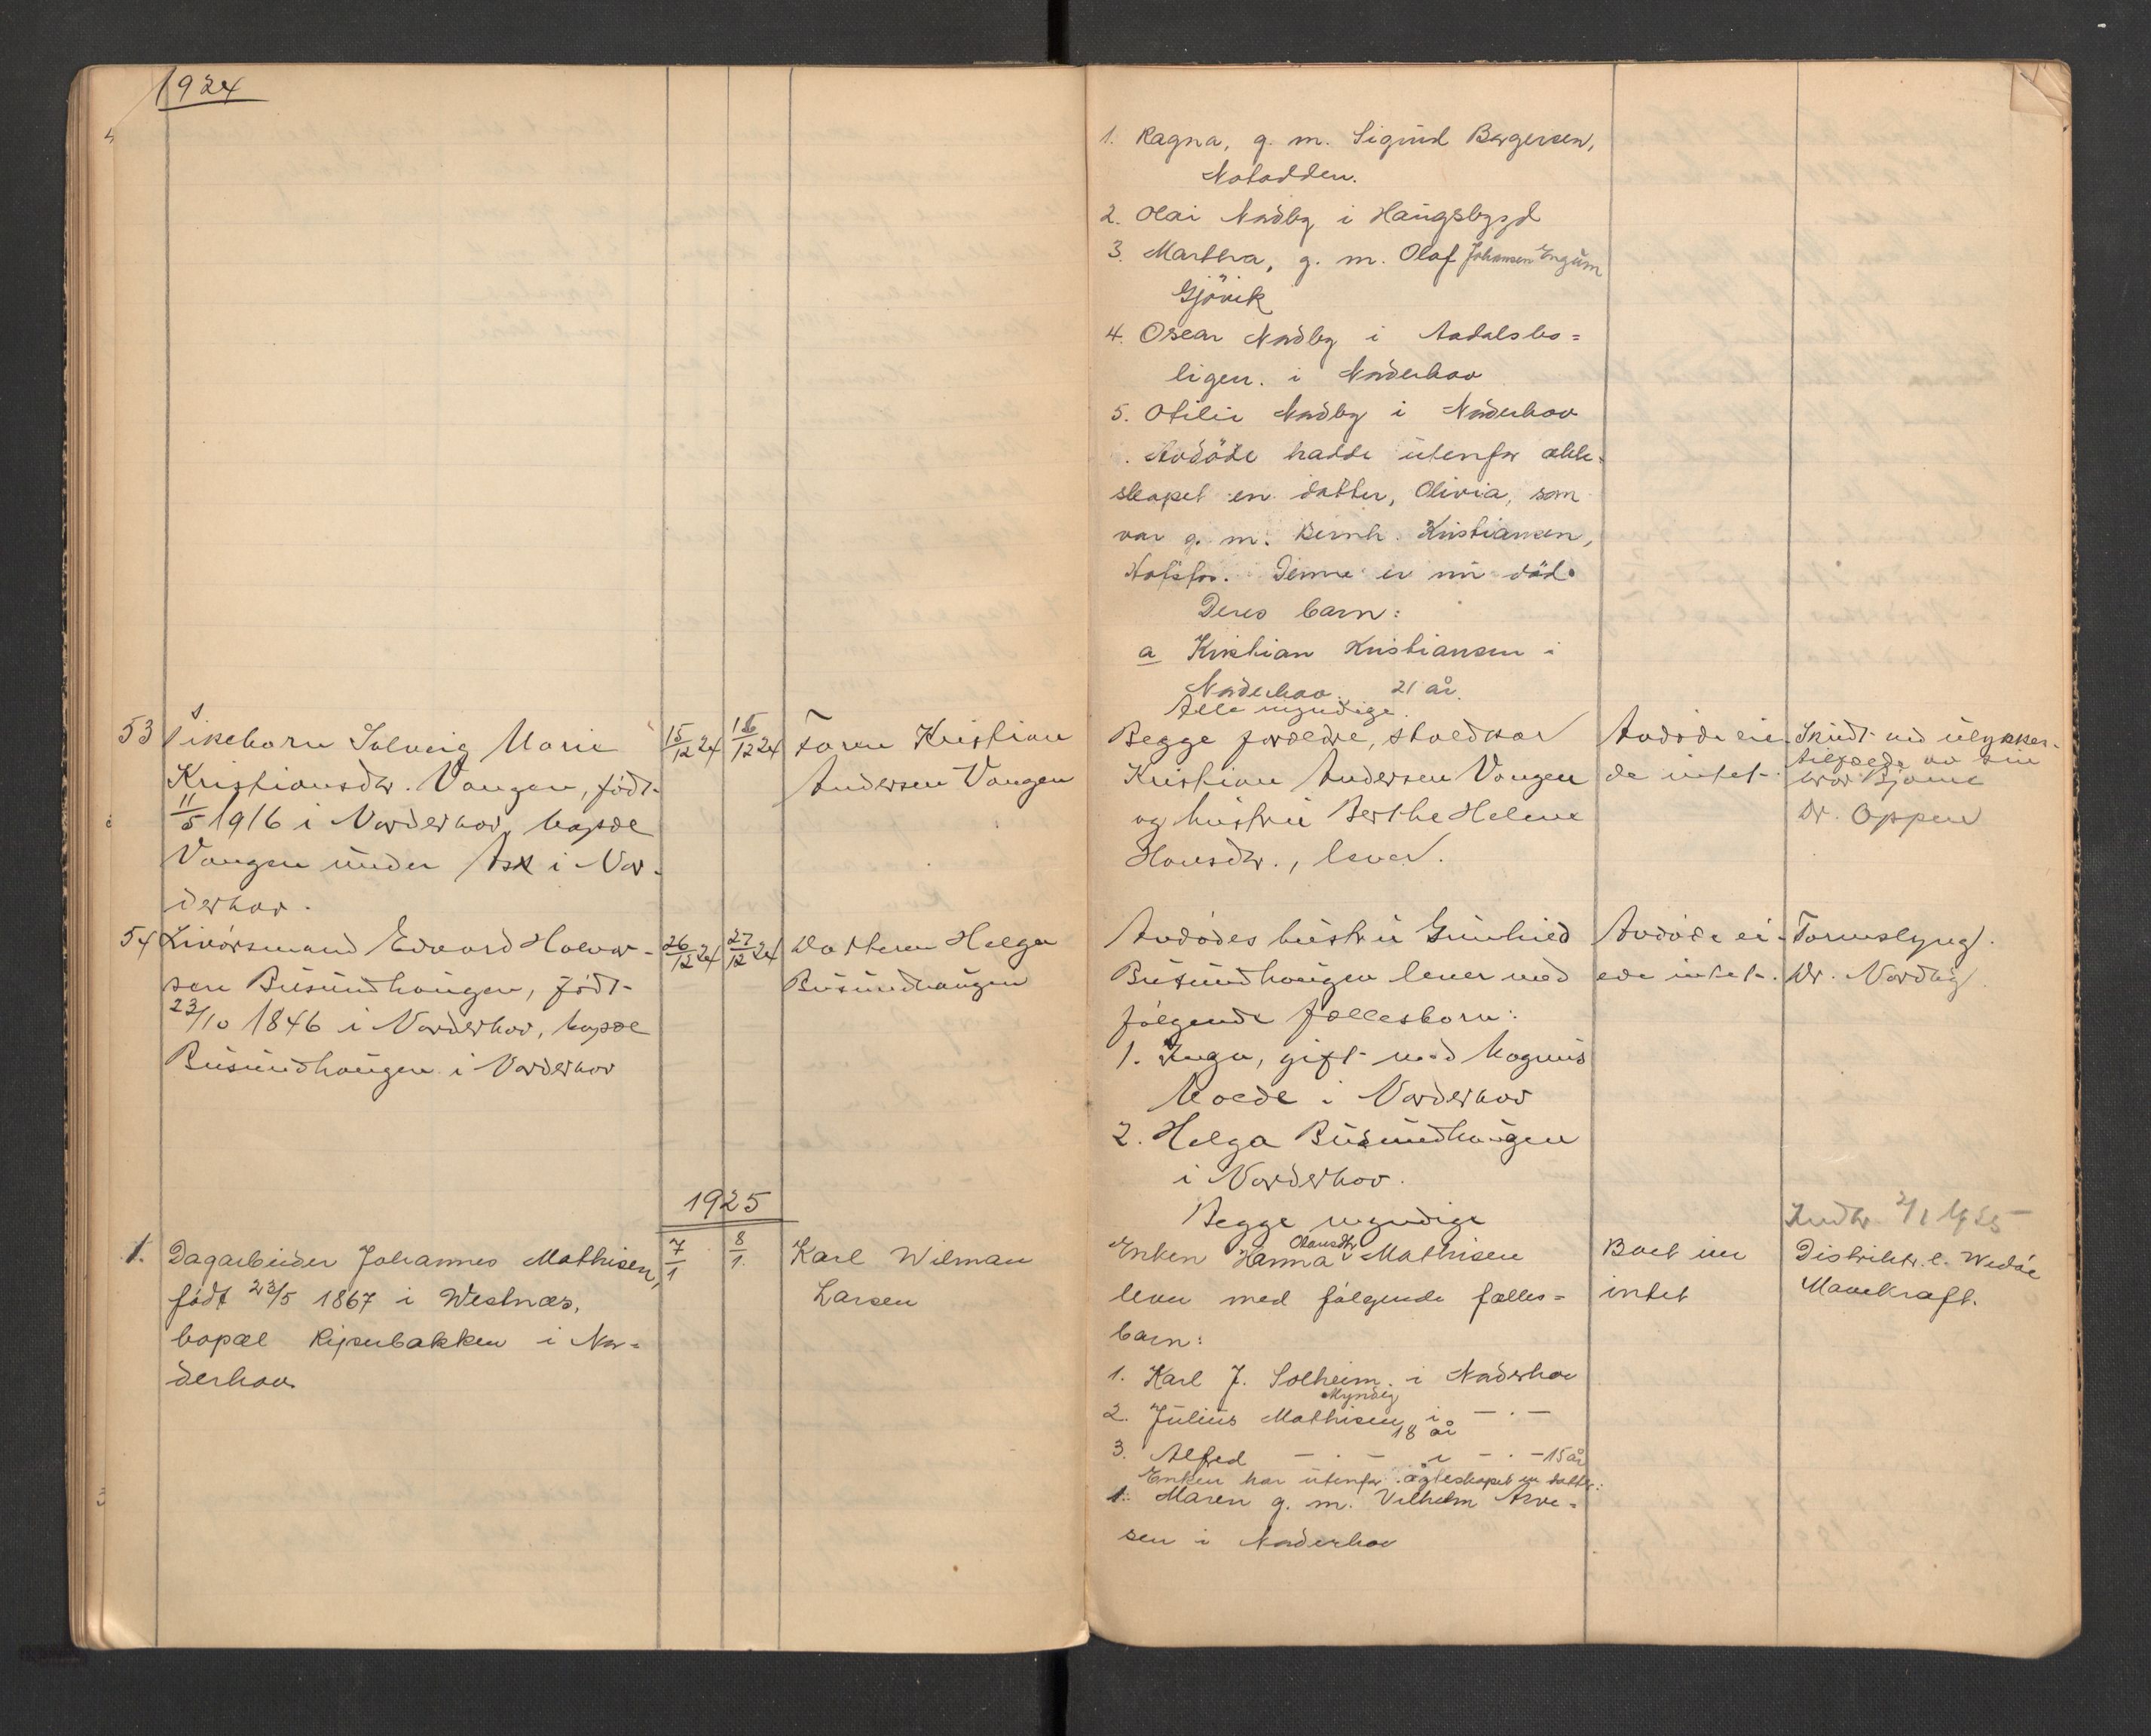 1924
53 Pikebarn Solveig Marie
Kristiansdtr. Vangen, født
11/5 1916 i Norderhov, bopæl
Vangen under Ask i Nor-
derhov.
15/12 24
16/12 24
Faren Kristian
Andersen Vangen
54 Livørsmand Edvard Halvor-
sen Busundhaugen, født
23/10 1846 i Norderhov, bopæl
Busundhaugen i Norderhov
26/12 24
27/12 24
Datteren Helga
Busundhaugen
1925
1. Dagarbeider Johannes Mathisen,
født 23/5 1867 i Vestnæs,
bopæl Ripserbakken i Nor-
derhov
7/1
8/1.
Karl Wilman
Larsen
1. Ragna, g. m. Sigurd Bergersen,
Notodden.
2. Olai Nordby i Haugsbygd
3. Martha, g. m. Olaf Johansen Engum
Gjövik
4. Oscar Nordby i Aadalsbo-
ligen. i Norderhov
5. Otilie Nordby i Norderhov
Avdöde hadde utenfor ekte-
skapet en datter, Olivia, som
var g. m. Bernh. Kristiansen,
Hofsfos. Denne er nu död.
Deres barn:
a Kristian Kristiansen i
Norderhov. 21 år.
Alle myndige.
Begge forældre,
Kristian Andersen Vangen
og hustru Berthe Helene
Hansdtr., lever.
Avdøde eie-
de intet.
Skudt ved ulykkes-
tilfælde av sin
bror Bjarne
Dr. Oppen
Avdødes hustru Gunhild
Busundhaugen lever med
følgende fællesbarn:
1. Inga, gift med Magnus
Moede i Norderhov
2. Helga Busundhaugen
i Norderhov.
Begge myndige
Avdøde ei-
ede intet.
Tarmslyng.
Dr. Nordby.
Indb. 2/1 1925
Enken Hanna Olausdtr Mathisen
lever med følgende fælles-
barn:
1. Karl J. Solheim. i Norderhov
Myndig
2. Julius Mathisen i — . —
18 år
3. Alfred — . — i — . — 15 år
Enken har utenfor ægteskapet en datter:
1. Maren g. m. Vilhelm Arve-
sen i Norderhov
Boet eier
intet
Distriktsl. Wedøe
Mavekraft.